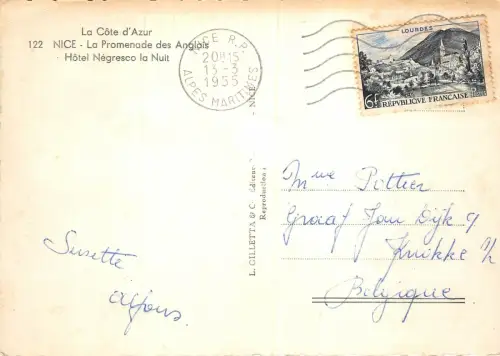 La Côte d'Azur
122 NICE - La Promenade des Anglais
Hôtel Négresco la Nuit
NICE R.P.
20H15
13-3
1955
ALPES MARITIMES
LOURDES
6F REPUBLIQUE FRANÇAISE
L. GILLETTA & Cie
NICE
Reproduction
Mme Pottier
Graaf Jan Dijk 9
Knokke s/
Belgique
Susette
Alfons